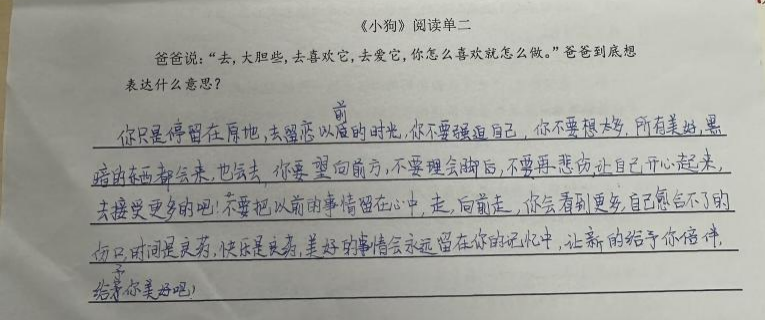 《小狗》阅读单二
爸爸说：“去，大胆些，去喜欢它，去爱它，你怎么喜欢就怎么做。”爸爸到底想
表达什么意思？
你只是停留在原地，去留恋以前的时光，你不要强迫自己，你不要想太多，所有美好，黑
暗的东西都会来，也会去，你要望向前方，不要理会脚后，不要再悲伤，让自己开心起来，
去接受更多的吧！不要把以前的事情留在心中，走，向前走，你会看到更多，自己愈合不了的
伤口，时间是良药，快乐是良药，美好的事情会永远留在你的记忆中，让新的给予你陪伴，
给予你美好吧！